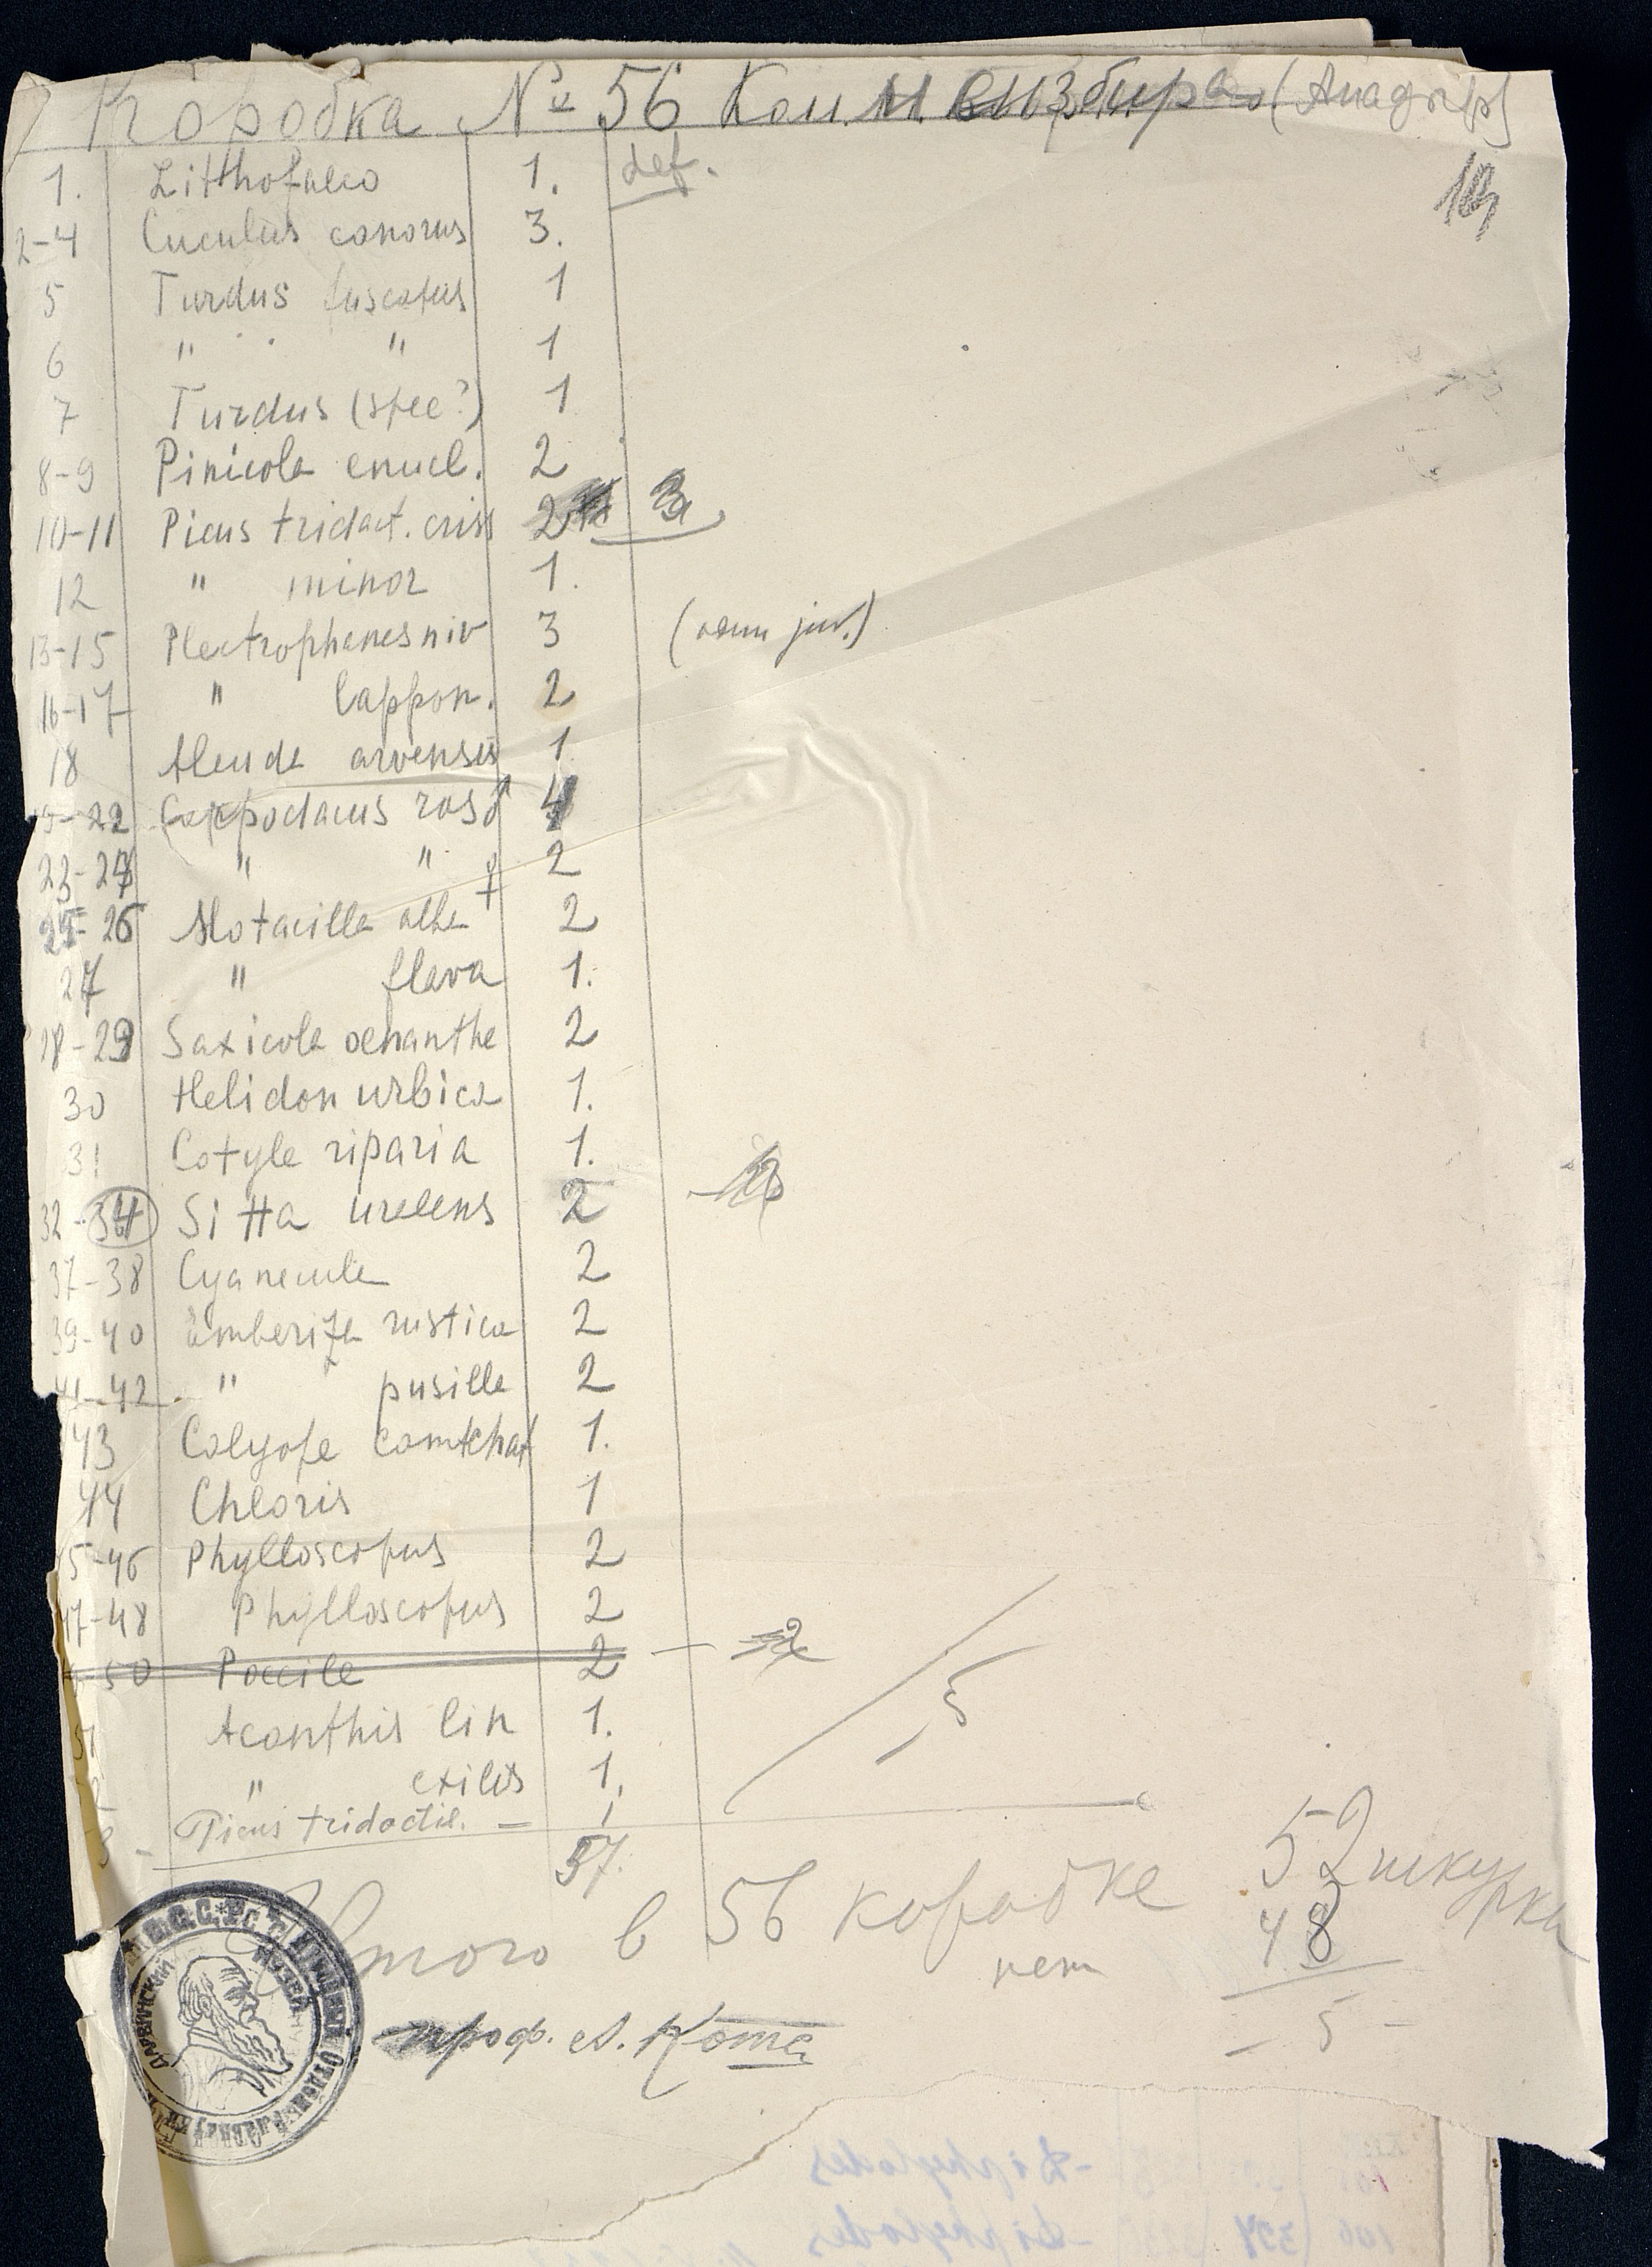 Коробка № 56 Кол. М. Мензбира (Анадырь)
1. Lithofalco 1. def.
2-4 Cuculus canorus 3.
5 Turdus fuscatus 1
6 " " 1
7 Turdus (spec?) 1
8-9 Pinicola enucl. 2
10-11 Picus tridact. criss 2 3
12 " minor 1.
13-15 Plectrophanes niv 3 juv.)
16-17 " lappon. 2
18 Alauda arvensis 1
19-22 Carpodacus ros ♂ 4
23-24 " " ♀ 2
25-26 Motacilla alba 2
27 " flava 1.
28-29 Saxicola oenanthe 2
30 Helidon urbica 1.
31 Cotyle riparia 1.
32-34 Sitta uralens 2
37-38 Cyanecula 2
39-40 Emberiza rustica 2
41-42 " pusilla 2
43 Calyope camtchat 1.
44 Chloris 1
5-46 Phylloscopus 2
47-48 Phylloscopus 2
50 Poecile 2 — 2
51 Acanthis lin 1. 5
2 " exilis 1.
3 - Picus tridactil. — 1
57.
Итого в 56 коробке 52 шкурки
нет 48
- 5 -
проф. А. Котс
ДАРВИНСКИЙ МУЗЕЙ